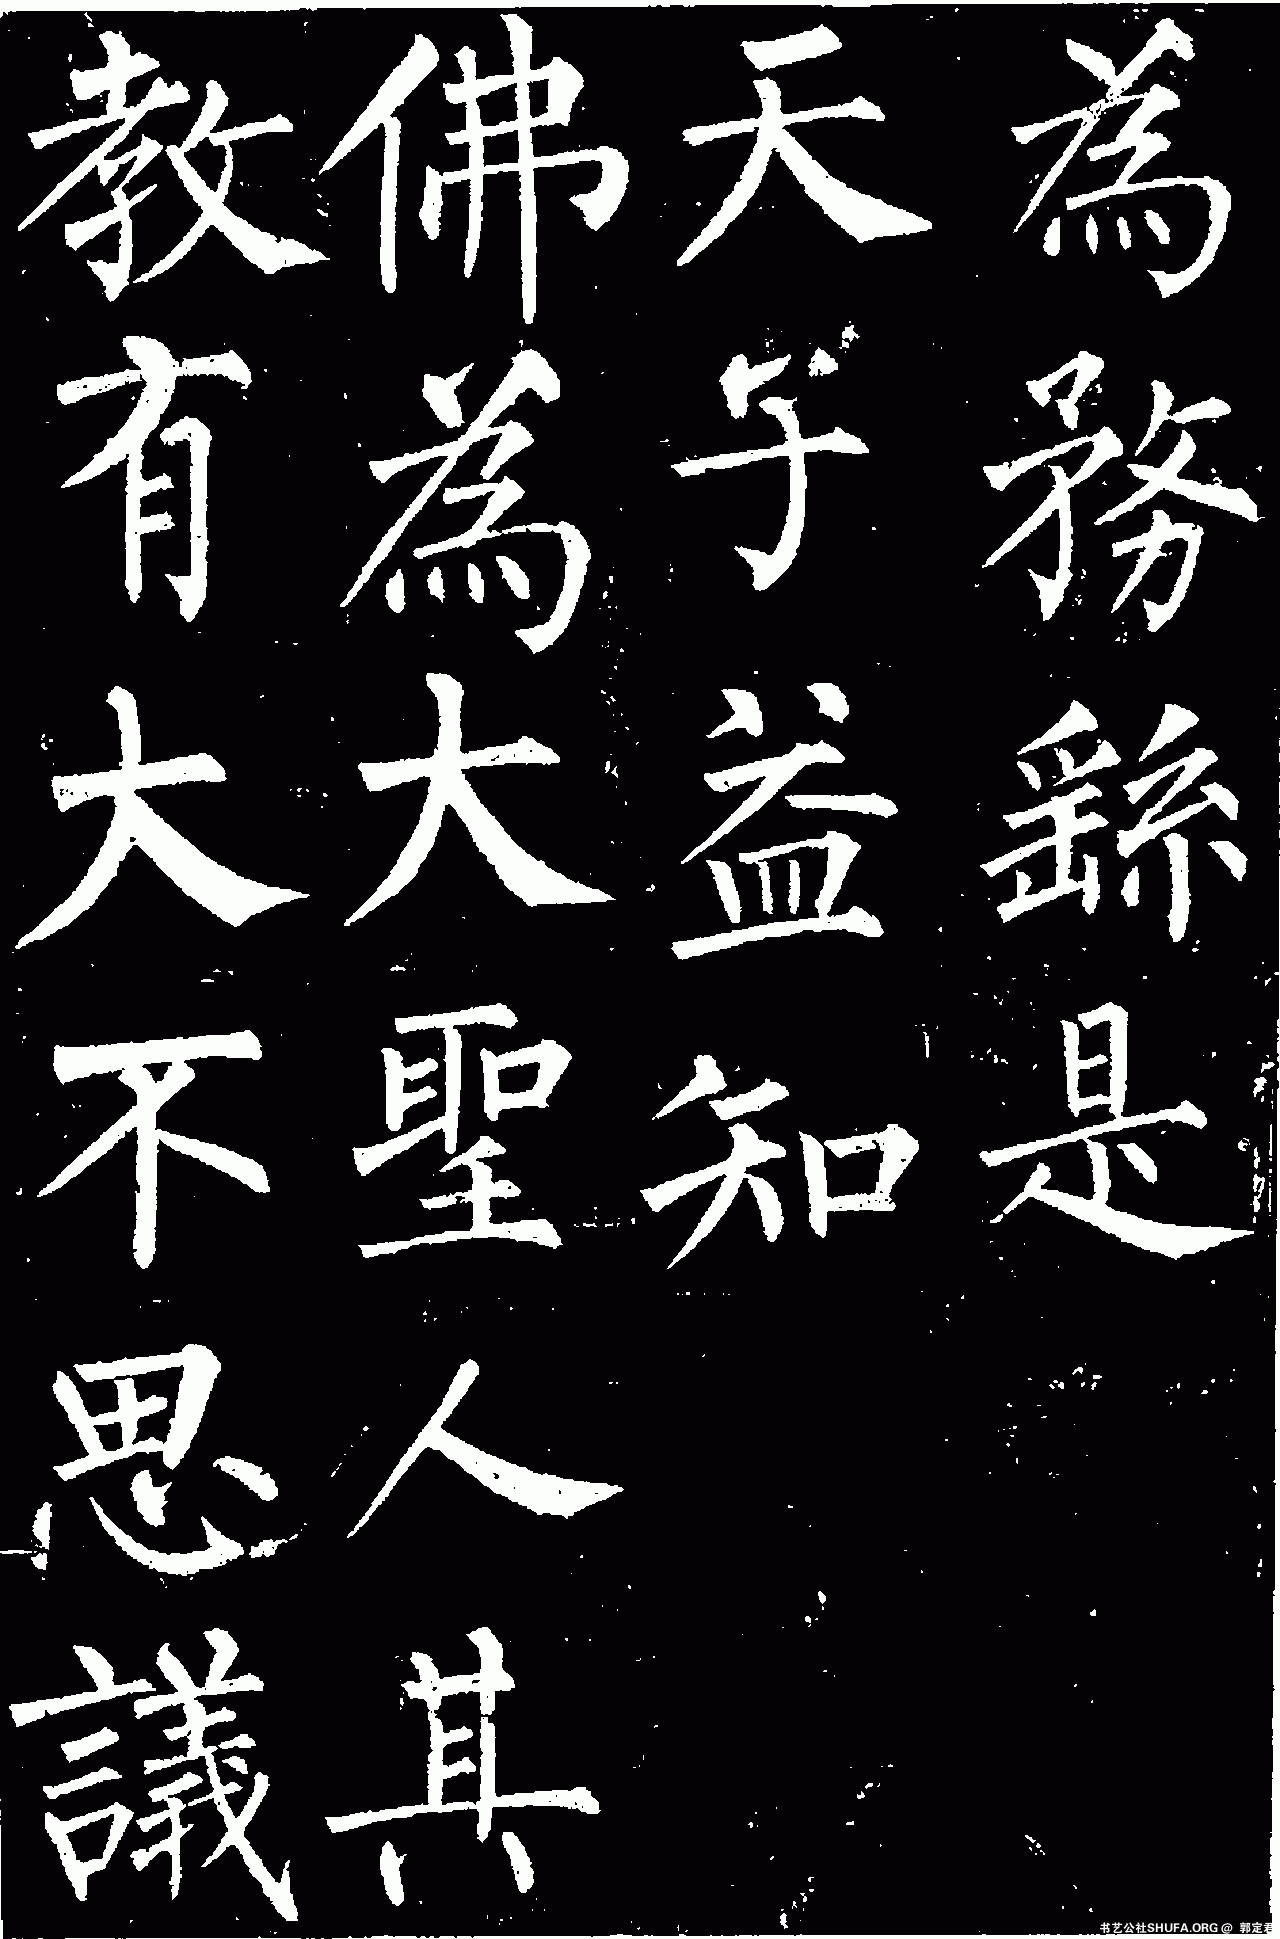 為務繇是
天子益知
佛為大聖人其
教有大不思議
书艺公社SHUFA.ORG @ 郭定君